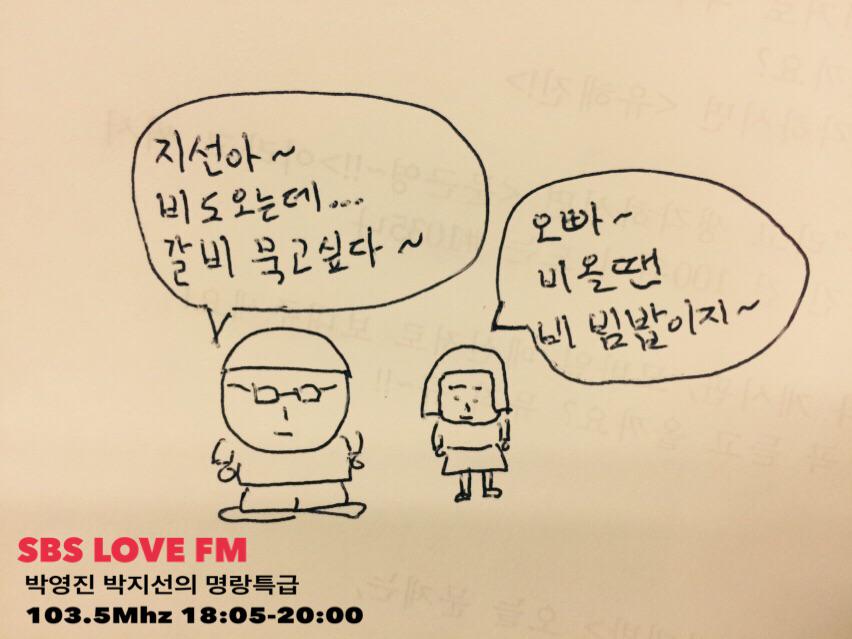 지선아~
비도오는데...
갈비 묵고싶다~
오빠~
비올땐
비빔밥이지~
SBS LOVE FM
박영진 박지선의 명랑특급
103.5Mhz 18:05-20:00